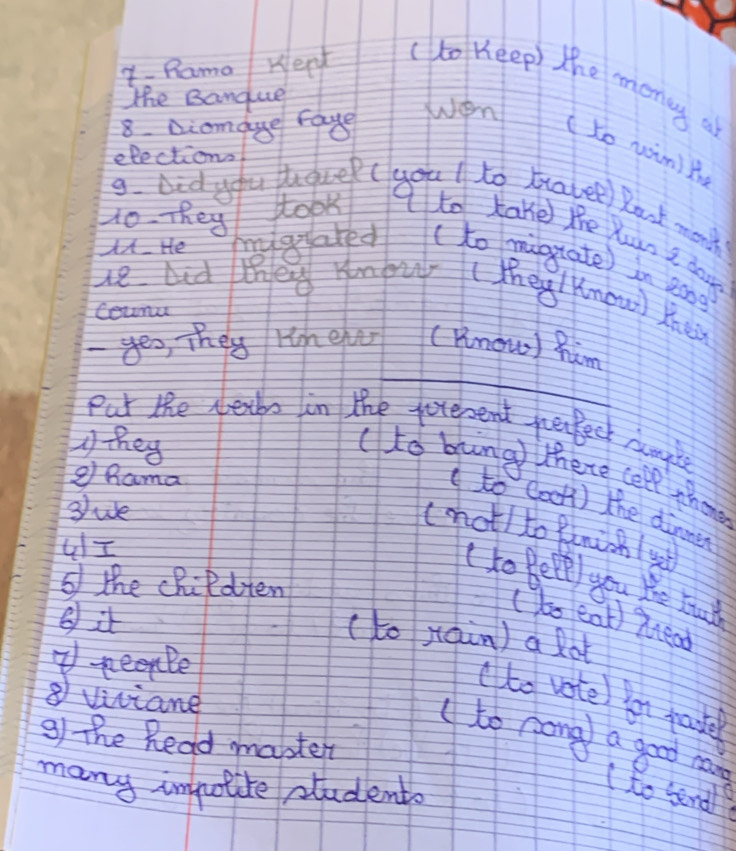 7- Rama Kept (to Keep) the money at
the Banque
8- Diomaye Faye Won (to win) the
elections
9- Did you travel (you / to travel) last month
10- They took (to take) the bus 2 days
11- He migrated (to migrate) in 2009
12- Did they Know (they/Know) their
- yes, They Knew (Know) him
Put the verbs in the present perfect simple
1) they (to bring) there cell phones
2) Rama (to cook) the dinner
3) we (not/to finish/yet)
4) I (to tell) you the truth
5) the children (to eat)
6) it (to rain) a lot
7) people (to vote) for pastef
8) Viviane (to song) a good song
9) the head master (to send)
many impolite students